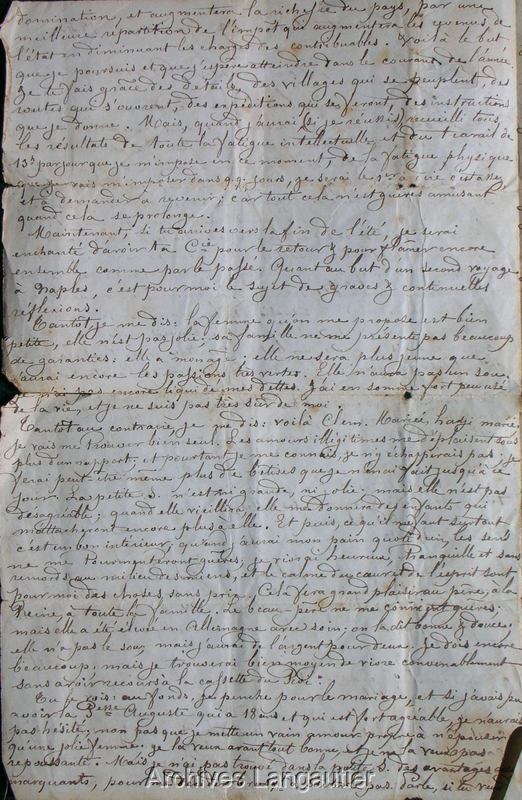 domination, et augmentera la richesse du pays, par une
meilleure répartition de l'impôt qui augmentera les revenus de
l'état en diminuant les charges des contribuables. Voilà le but
que je poursuis et que j'espère atteindre dans le courant de l'année.
Je te fais grâce des détails, des villages qui se peuplent, des
routes qui s'ouvrent, des expéditions qui se feront, des instructions
que je donne. Mais, quand j'aurai (si je réussis) recueilli tous
les résultats de toute la fatigue intellectuelle et du travail de
13h par jour que je m'impose en ce moment, de la fatigue physique
que je vais m'imposer dans qq. jours, je serai le 1er à
et à demander à revenir; car tout cela n'est guères amusant
quand cela se prolonge.
Maintenant, si tu arrives vers la fin de l'été, je serai
enchanté d'avoir ta Cie pour le retour & pour flâner encore
ensemble comme par le passé. Quant au but d'un second voyage
à Naples, c'est pour moi le sujet de graves & continuelles
réflexions.
Tantôt, je me dis: la femme qu'on me propose est bien
petite, elle n'est pas jolie; sa famille ne me présente pas beaucoup
de garanties: elle a mon âge; elle ne sera plus jeune que
j'aurai encore les passions très vertes. Elle n'aura pas un sou,
je n'ai pas encore liquidé mes dettes. J'ai en somme fort peu usé
de la vie, et je ne suis pas très sûr de moi.
Tantôt au contraire, je me dis: voilà Clem. Mariée, hadji marié,
je vais me trouver bien seul. Les amours illégitimes me déplaisent sous
plus d'un rapport, et pourtant je me connais, je n'y échapperais pas; je
ferai peut-être même plus de bêtises que je n'en ai fait jusqu'à ce
jour. La petite S. n'est ni grande, ni jolie. mais elle n'est pas
désagréable; quand elle vieillira, elle me donnera des enfants qui
m'attacheront encore plus à elle. Et puis, ce qu'il me faut surtout
c'est un bon intérieur; quand j'aurai mon pain quotidien, les sens
ne me tourmenteront guères, je vivrai heureux, tranquille et sans
remords, au milieu des miens, et le calme du cœur et de l'esprit sont
pour moi des choses sans prix. Cela fera grand plaisir au père, à la
Reine, à toute la famille. Le beau-père ne me convient guères;
mais elle a été élevée en Allemagne avec soin; on la dit bonne & douce.
elle n'a pas le sou, mais j'aurai de l'argent pour deux. Je dois encore
beaucoup, mais je trouverai bien moyen de vivre convenablement
sans avoir recours à la cassette du Roi.
Tu le vois: au fonds, je penche pour le mariage, et si j'avais pu
avoir la Psse Auguste qui a 18 ans et qui est fort agréable, je n'aurais
pas hésité; non pas que je mette un vain amour propre à n'épouser
qu'une jolie femme; je la veux avant tout bonne, et je ne la veux pas
repoussante. Mais je n'ai pas trouvé dans la petite S. des avantages
marquants, pour
Archives Langautier